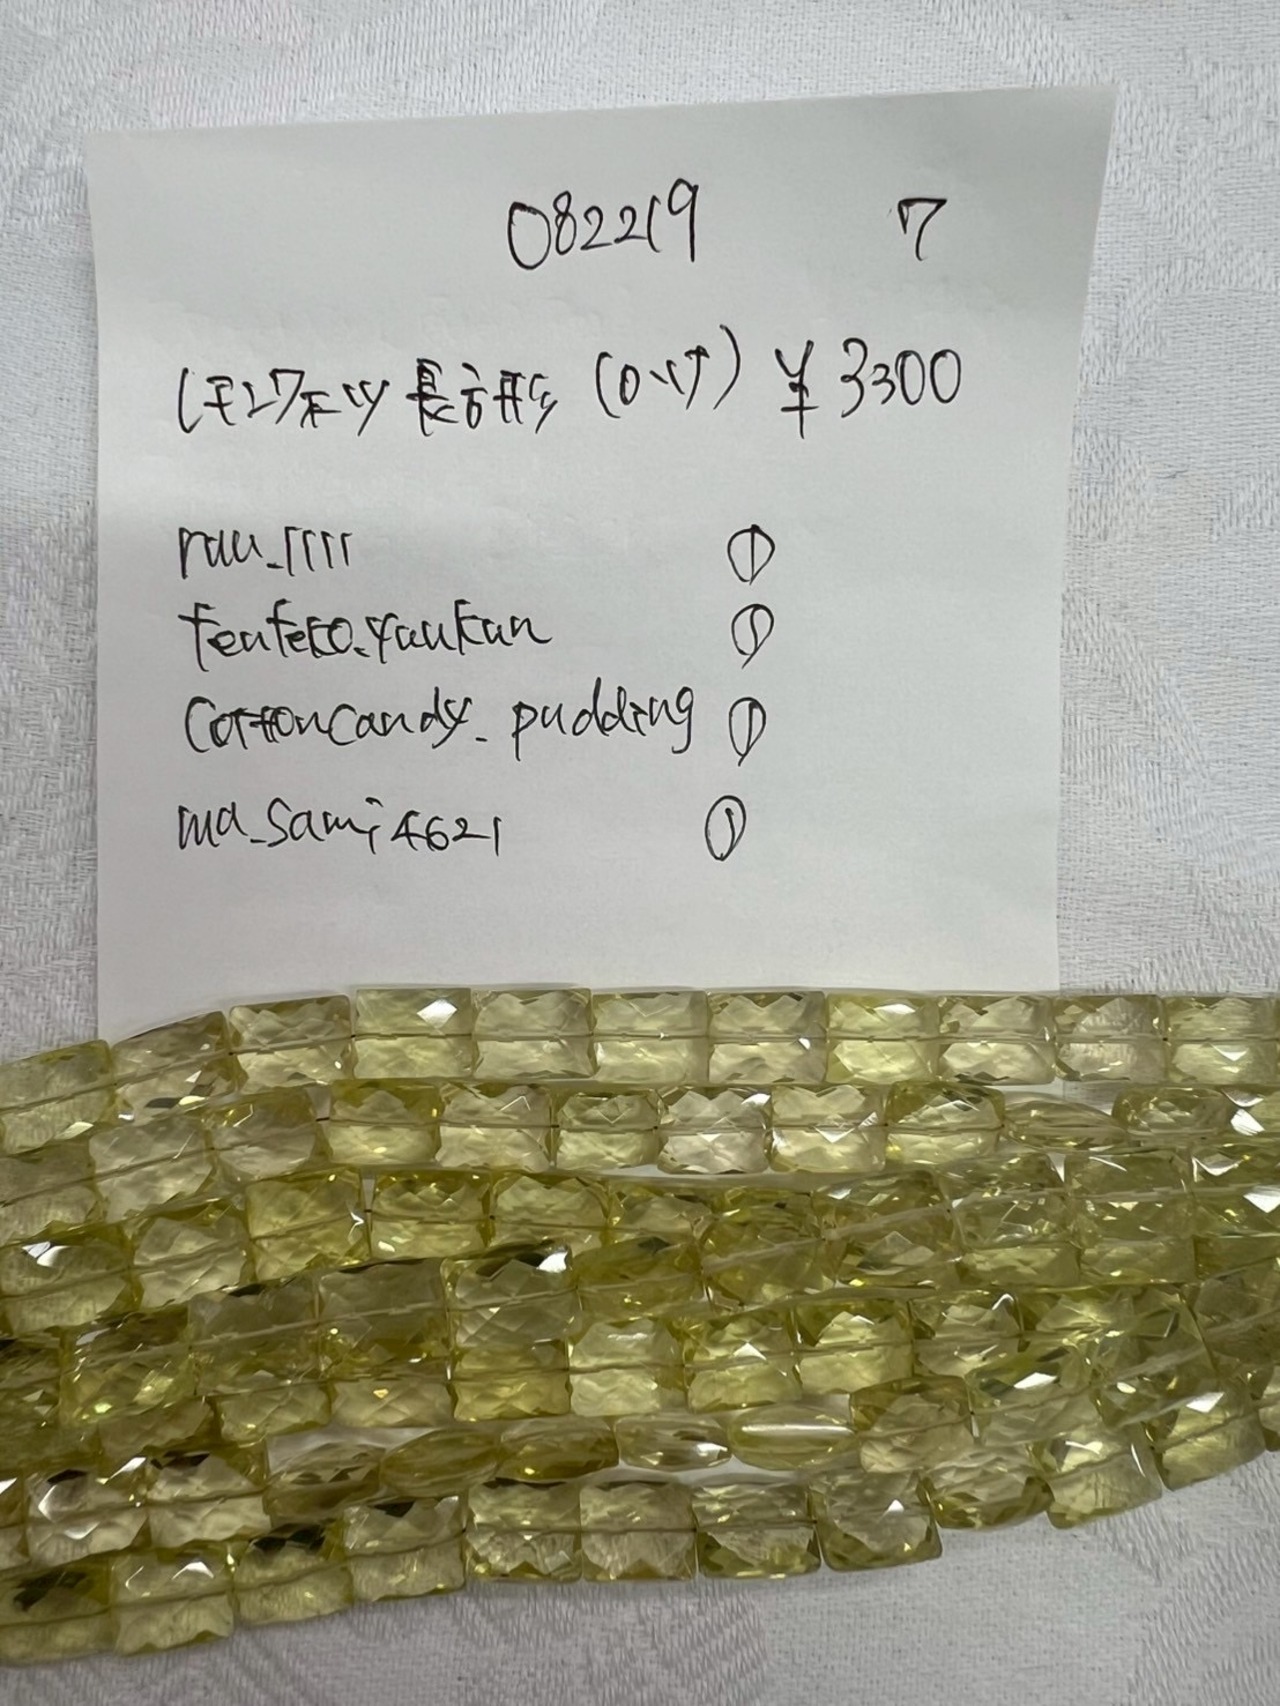 082219 7
レモンクォーツ 長方形 (ロング) ¥3300
rau_1111 ①
tenteko.yaukan ①
Cottoncandy_pudding ①
ma_sami4621 ①